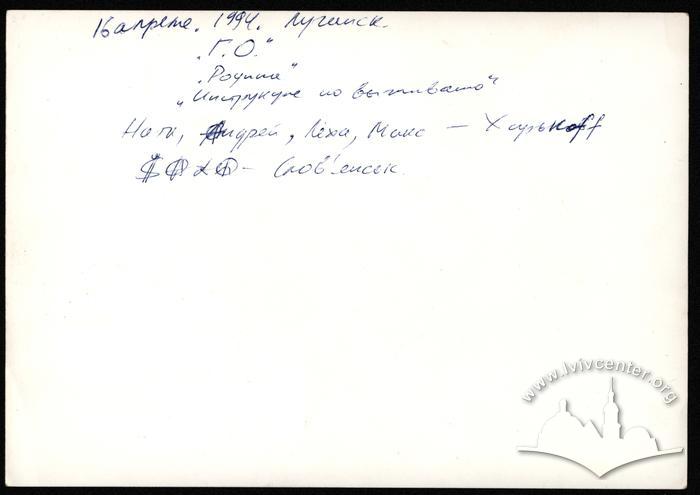 16 апреля. 1994. Луганск.
„Г.О."
„Родина"
„Инструкция по выживанию"
Натк, Андрей, Лёха, Макс — Харькоff
- Слов'янськ.
www.lvivcenter.org